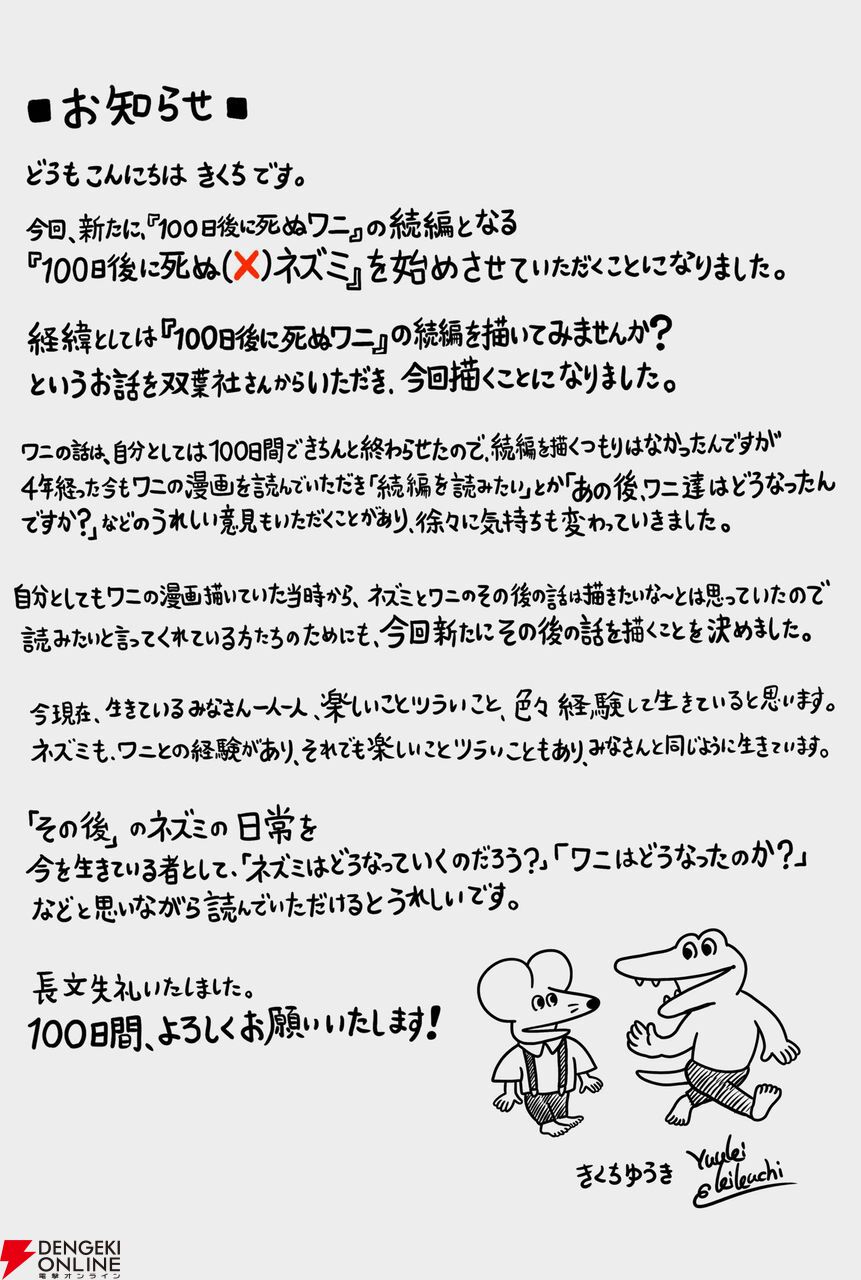 ■お知らせ■
どうもこんにちは きくちです。
今回、新たに、『100日後に死ぬワニ』の続編となる
『100日後に死ぬ(×)ネズミ』を始めさせていただくことになりました。
経緯としては『100日後に死ぬワニ』の続編を描いてみませんか?
というお話を双葉社さんからいただき、今回描くことになりました。
ワニの話は、自分としては100日間できちんと終わらせたので、続編を描くつもりはなかったんですが
4年経った今もワニの漫画を読んでいただき「続編を読みたい」とか「あの後、ワニ達はどうなったん
ですか?」などのうれしい意見もいただくことがあり、徐々に気持ちも変わっていきました。
自分としてもワニの漫画描いていた当時から、ネズミとワニのその後の話は描きたいな〜とは思っていたので
読みたいと言ってくれている方たちのためにも、今回新たにその後の話を描くことを決めました。
今現在、生きているみなさん一人一人、楽しいことツラいこと、色々経験して生きていると思います。
ネズミも、ワニとの経験があり、それでも楽しいことツラいこともあり、みなさんと同じように生きています。
「その後」のネズミの日常を
今を生きている者として、「ネズミはどうなっていくのだろう?」「ワニはどうなったのか?」
などと思いながら読んでいただけるとうれしいです。
長文失礼いたしました。
100日間、よろしくお願いいたします!
きくちゆうき Yuuki Kikuchi
DENGEKI
ONLINE
電撃オンライン